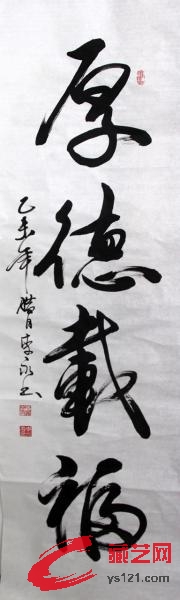 厚德載福
乙未年腊月李永书
藏艺网
ys121.com